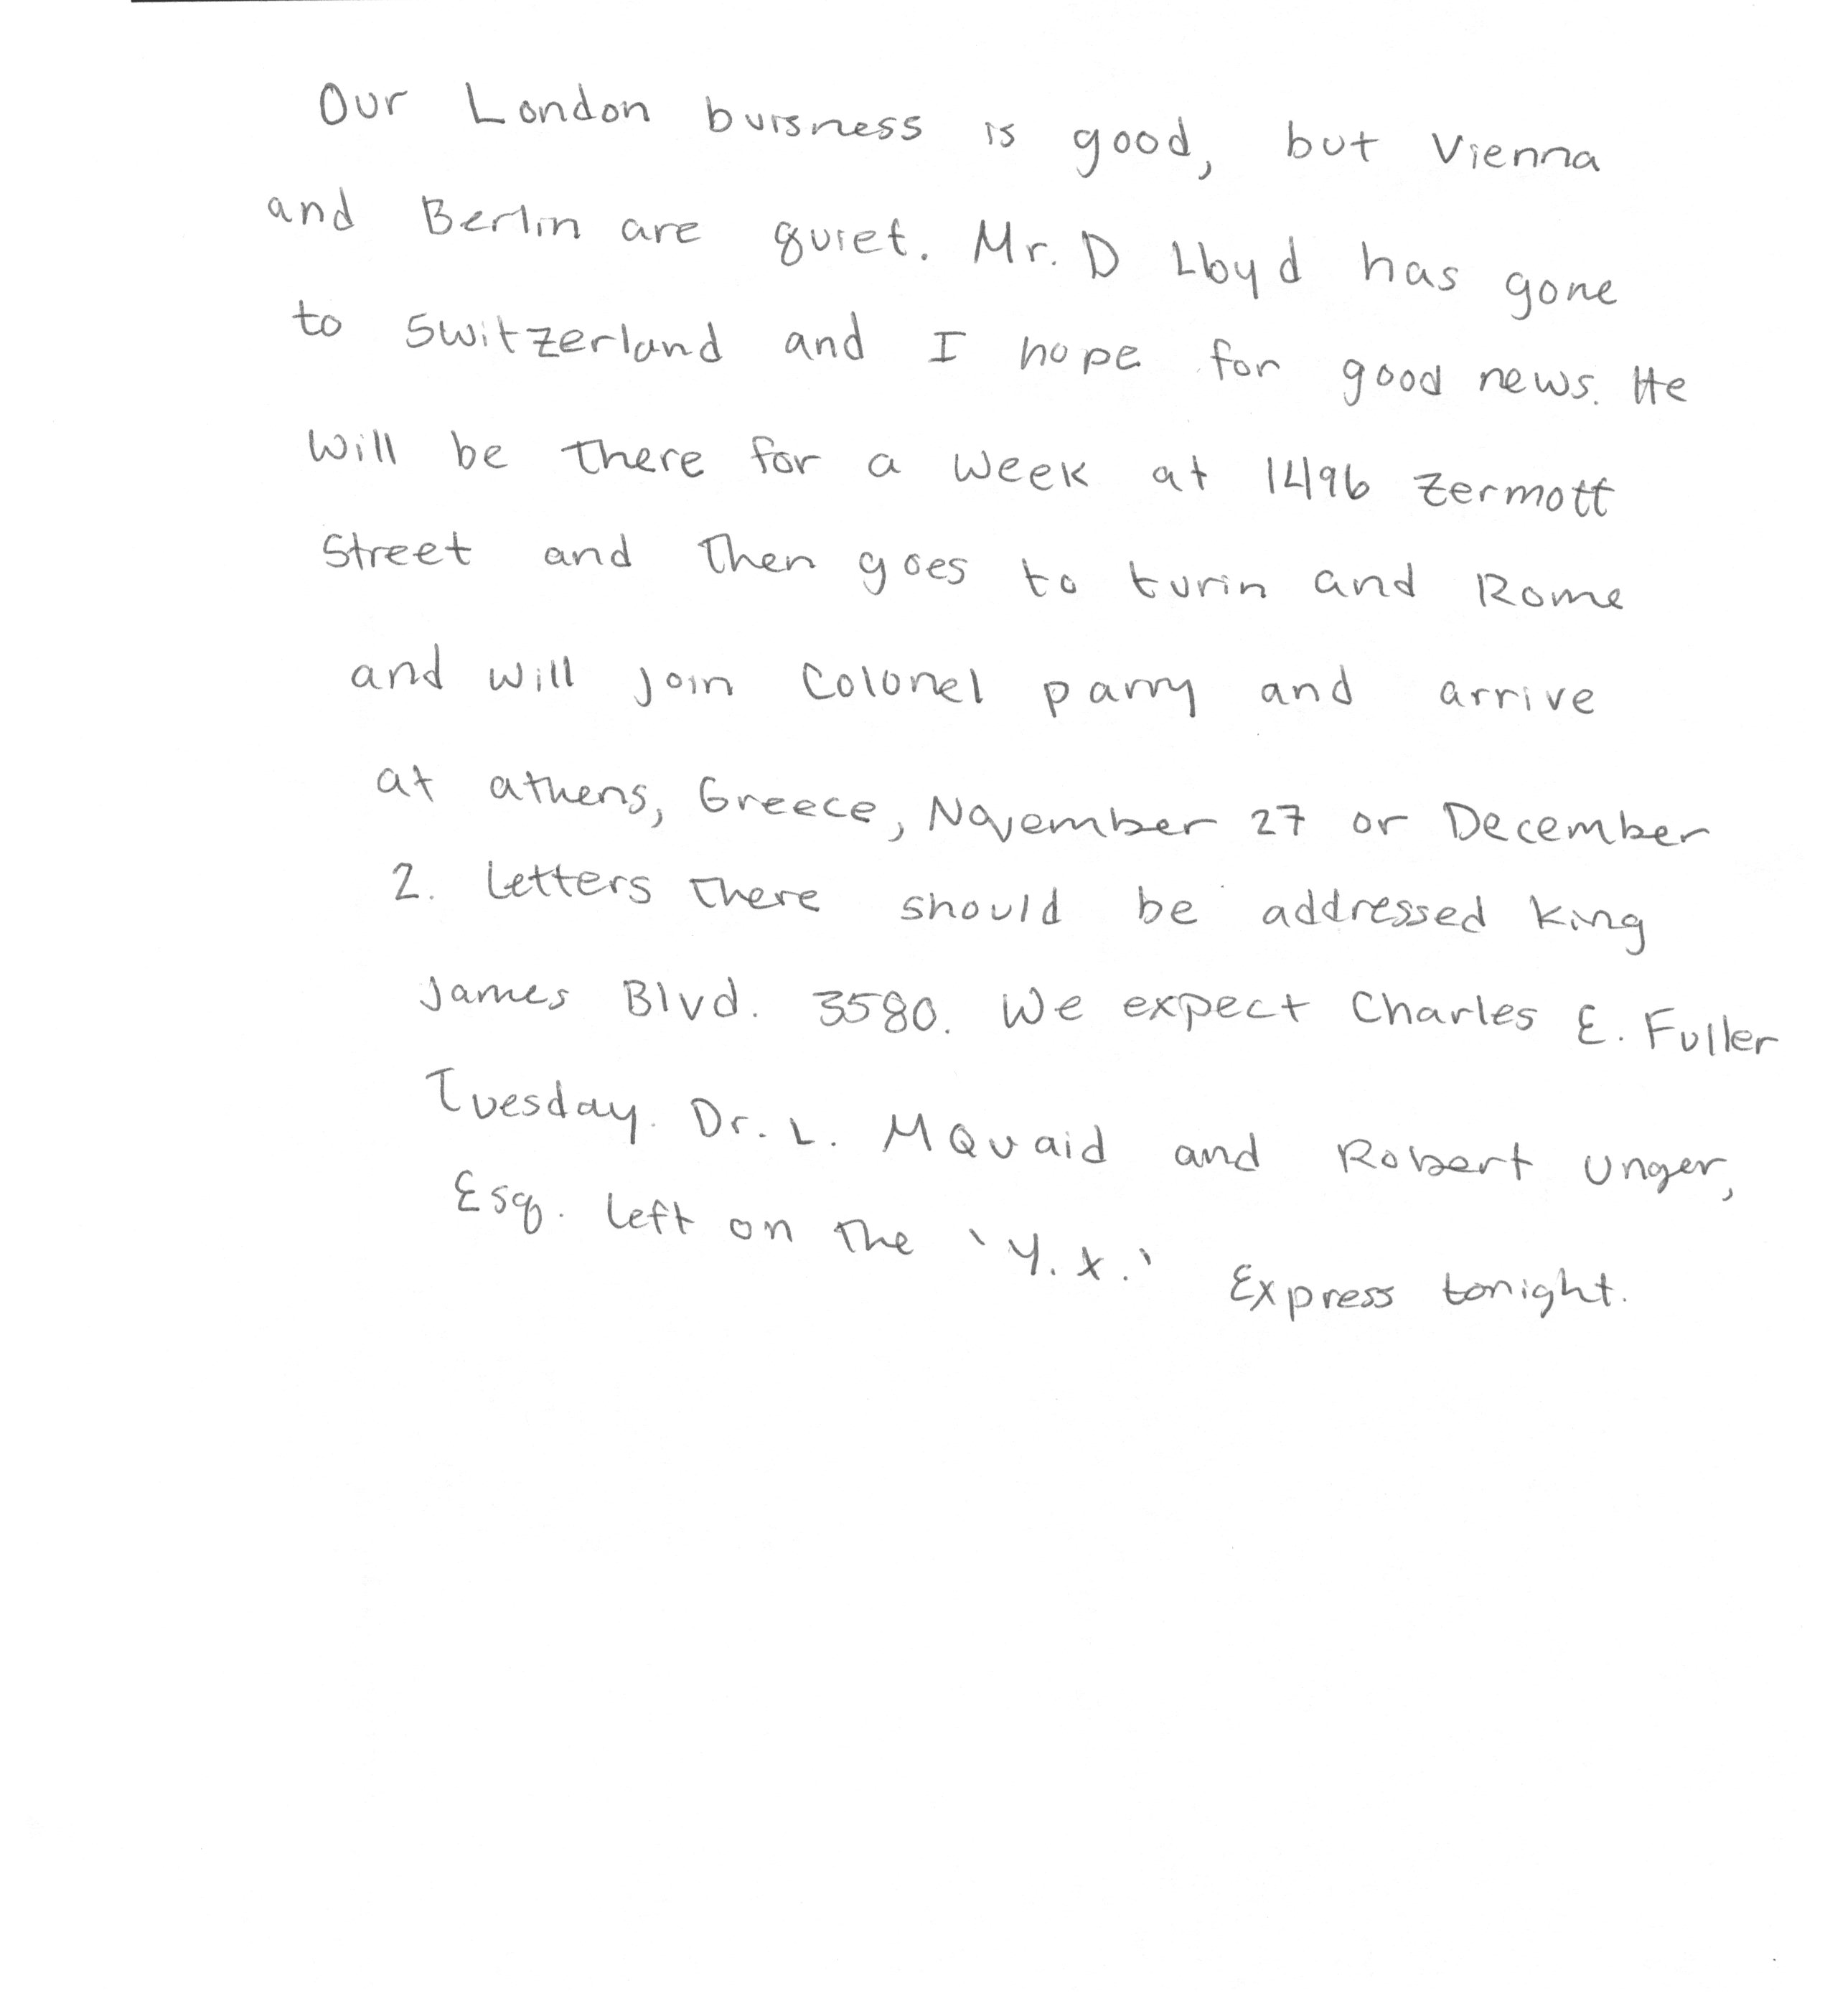 Our London buisness is good, but Vienna
and Berlin are quiet. Mr. D Lloyd has gone
to Switzerland and I hope for good news. He
will be there for a week at 1496 Zermott
Street and then goes to turin and Rome
and will join Colonel parry and arrive
at athens, Greece, November 27 or December
2. Letters there should be addressed King
James Blvd. 3580. We expect Charles E. Fuller
Tuesday. Dr. L. MQuaid and Robert Unger,
Esq. left on the 'Y.X.' Express tonight.